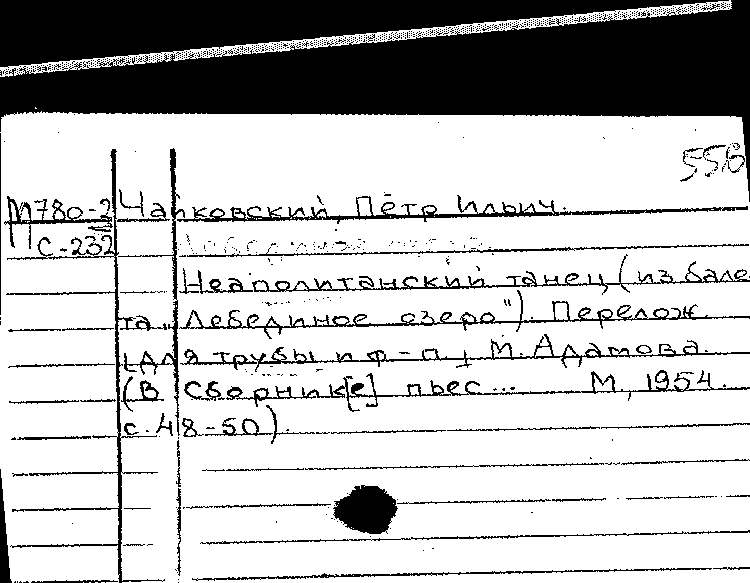 556
М780-2 Чайковский, Пётр Ильич.
С-232 Лебединое озеро.
Неаполитанский танец (из бале
та „Лебединое озеро"). Перелож.
[для трубы и ф-п.] М. Адамова.
(В Сборник[е] пьес... М., 1954.
с. 48-50).